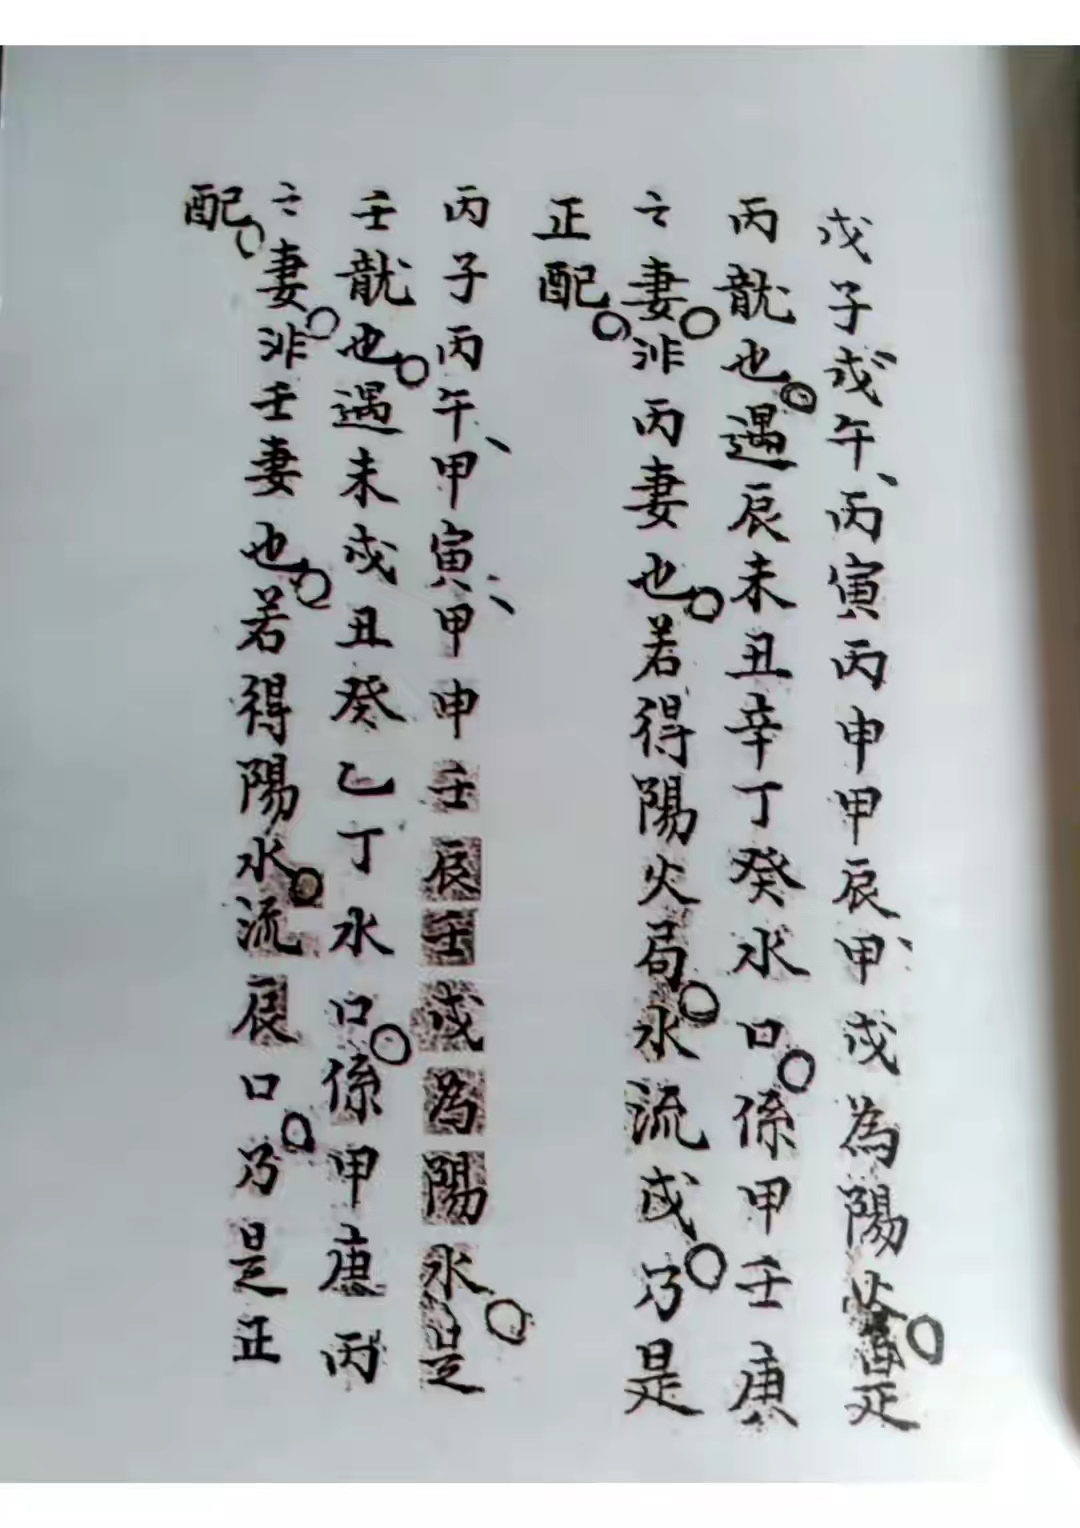 戊子戊午丙寅丙申甲辰甲戌為陽火皆是
丙龍也遇辰未丑辛丁癸水口係甲壬庚
之妻非丙妻也若得陽火局水流戌乃是
正配
丙子丙午甲寅甲申壬辰壬戌為陽水是
壬龍也遇未戌丑癸乙丁水口係甲庚丙
之妻非壬妻也若得陽水流辰口乃是正
配